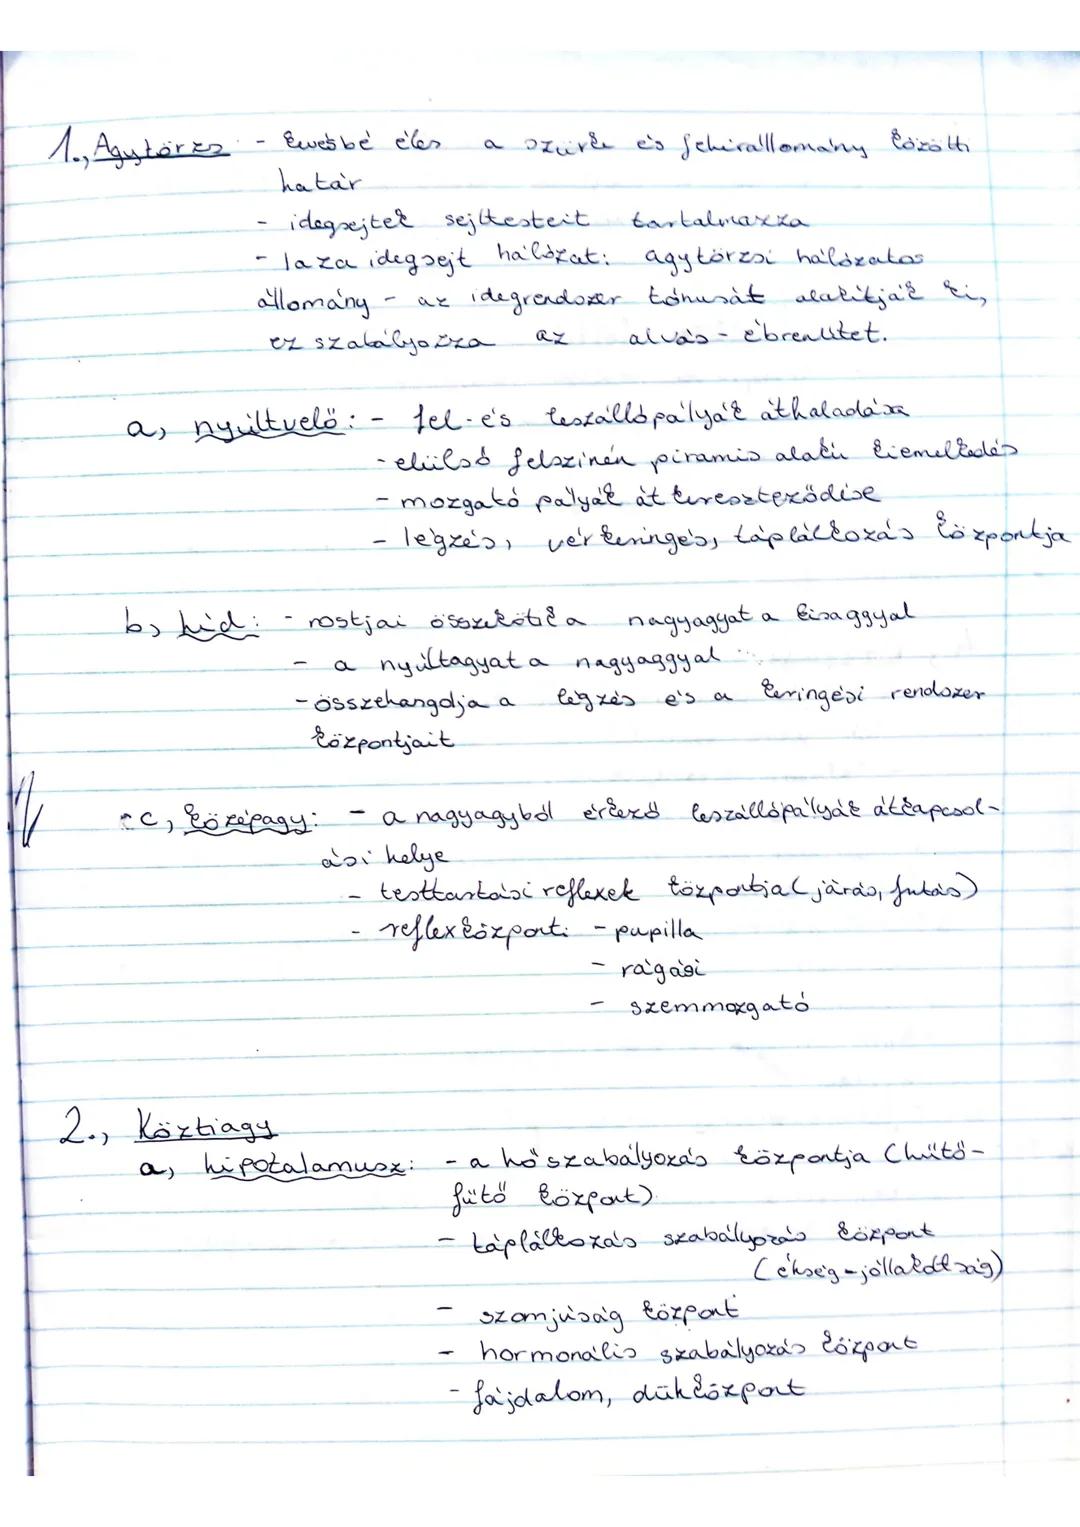 1., Agytörzs - kevésbé éles a szürke és fehérállomány közötti
határ
- idegsejtek sejttesteit tartalmazza
- laza idegsejt hálózat: agytörzsi hálózatos
állomány - az idegrendszer tónusát alakítják ki,
ez szabályozza az alvás - ébrenlétet.
a, nyúltvelő: - fel- és leszállópályák áthaladása
- elülső felszínén piramis alakú kiemelkedés
- mozgató pályák átkereszteződése
- légzés, vérkeringés, táplálkozás központja
b, híd: - rostjai összekötik a nagyagyat a kisaggyal
- a nyúltagyat a nagyaggyal
- összehangolja a légzés és a keringési rendszer
központjait
c, középagy: - a nagyagyból érkező leszállópályák átkapcsol-
ási helye
- testtartási reflexek központja (járás, futás)
- reflexközpont: - pupilla
- rágási
- szemmozgató
2., Köztiagy
a, hipotalamusz: - a hőszabályozás központja (hűtő-
fűtő központ)
- táplálkozás szabályozás központ
(éhség - jóllakottság)
- szomjúság központ
- hormonális szabályozás központ
- fájdalom, dühközpont